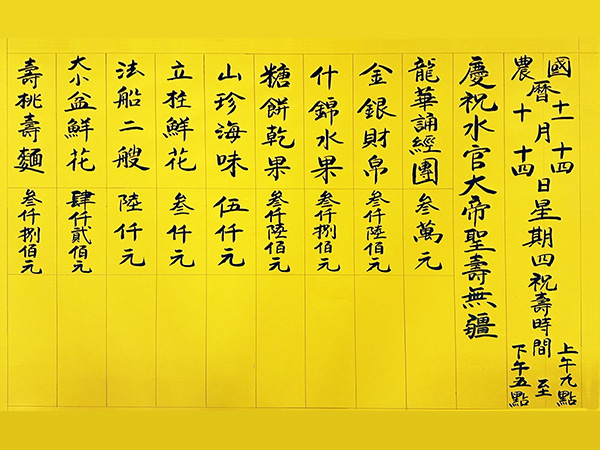 國農曆十一十月十四十四日星期四祝壽時間上午九點至下午五點
慶祝水官大帝聖壽無疆
龍華誦經團 叁萬元
金銀財帛 叁仟陸佰元
什錦水果 叁仟捌佰元
糖餅乾果 叁仟陸佰元
山珍海味 伍仟元
立柱鮮花 叁仟元
法船二艘 陸仟元
大小盆鮮花 肆仟貳佰元
壽桃壽麵 叁仟捌佰元